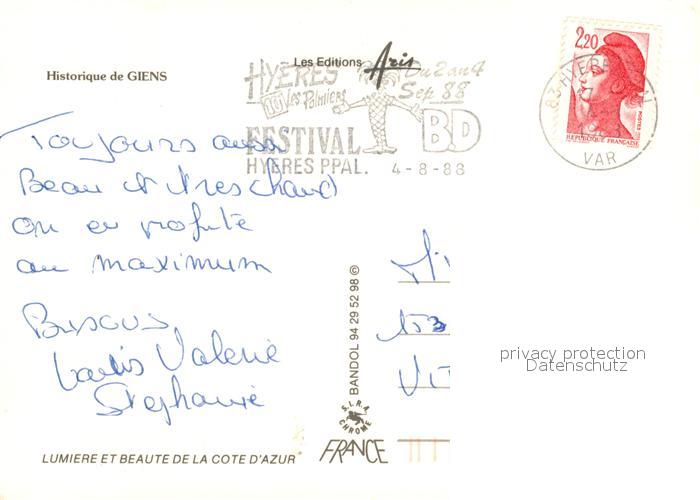 Historique de GIENS
Les Editions Aris
HYÈRES
les Palmiers
Du 2 au 4
Sep 88
FESTIVAL BD
HYERES PPAL. 4-8-88
2,20
POSTES
REPUBLIQUE FRANÇAISE
83 HYERES
VAR
Toujours aussi
Beau et très chaud
on en profite
au maximum
Bisous
Valerie
Stephanie
BANDOL 94 29 52 98 ©
S.I.R.A.
CHROME
FRANCE
LUMIERE ET BEAUTE DE LA COTE D'AZUR
privacy protection
Datenschutz